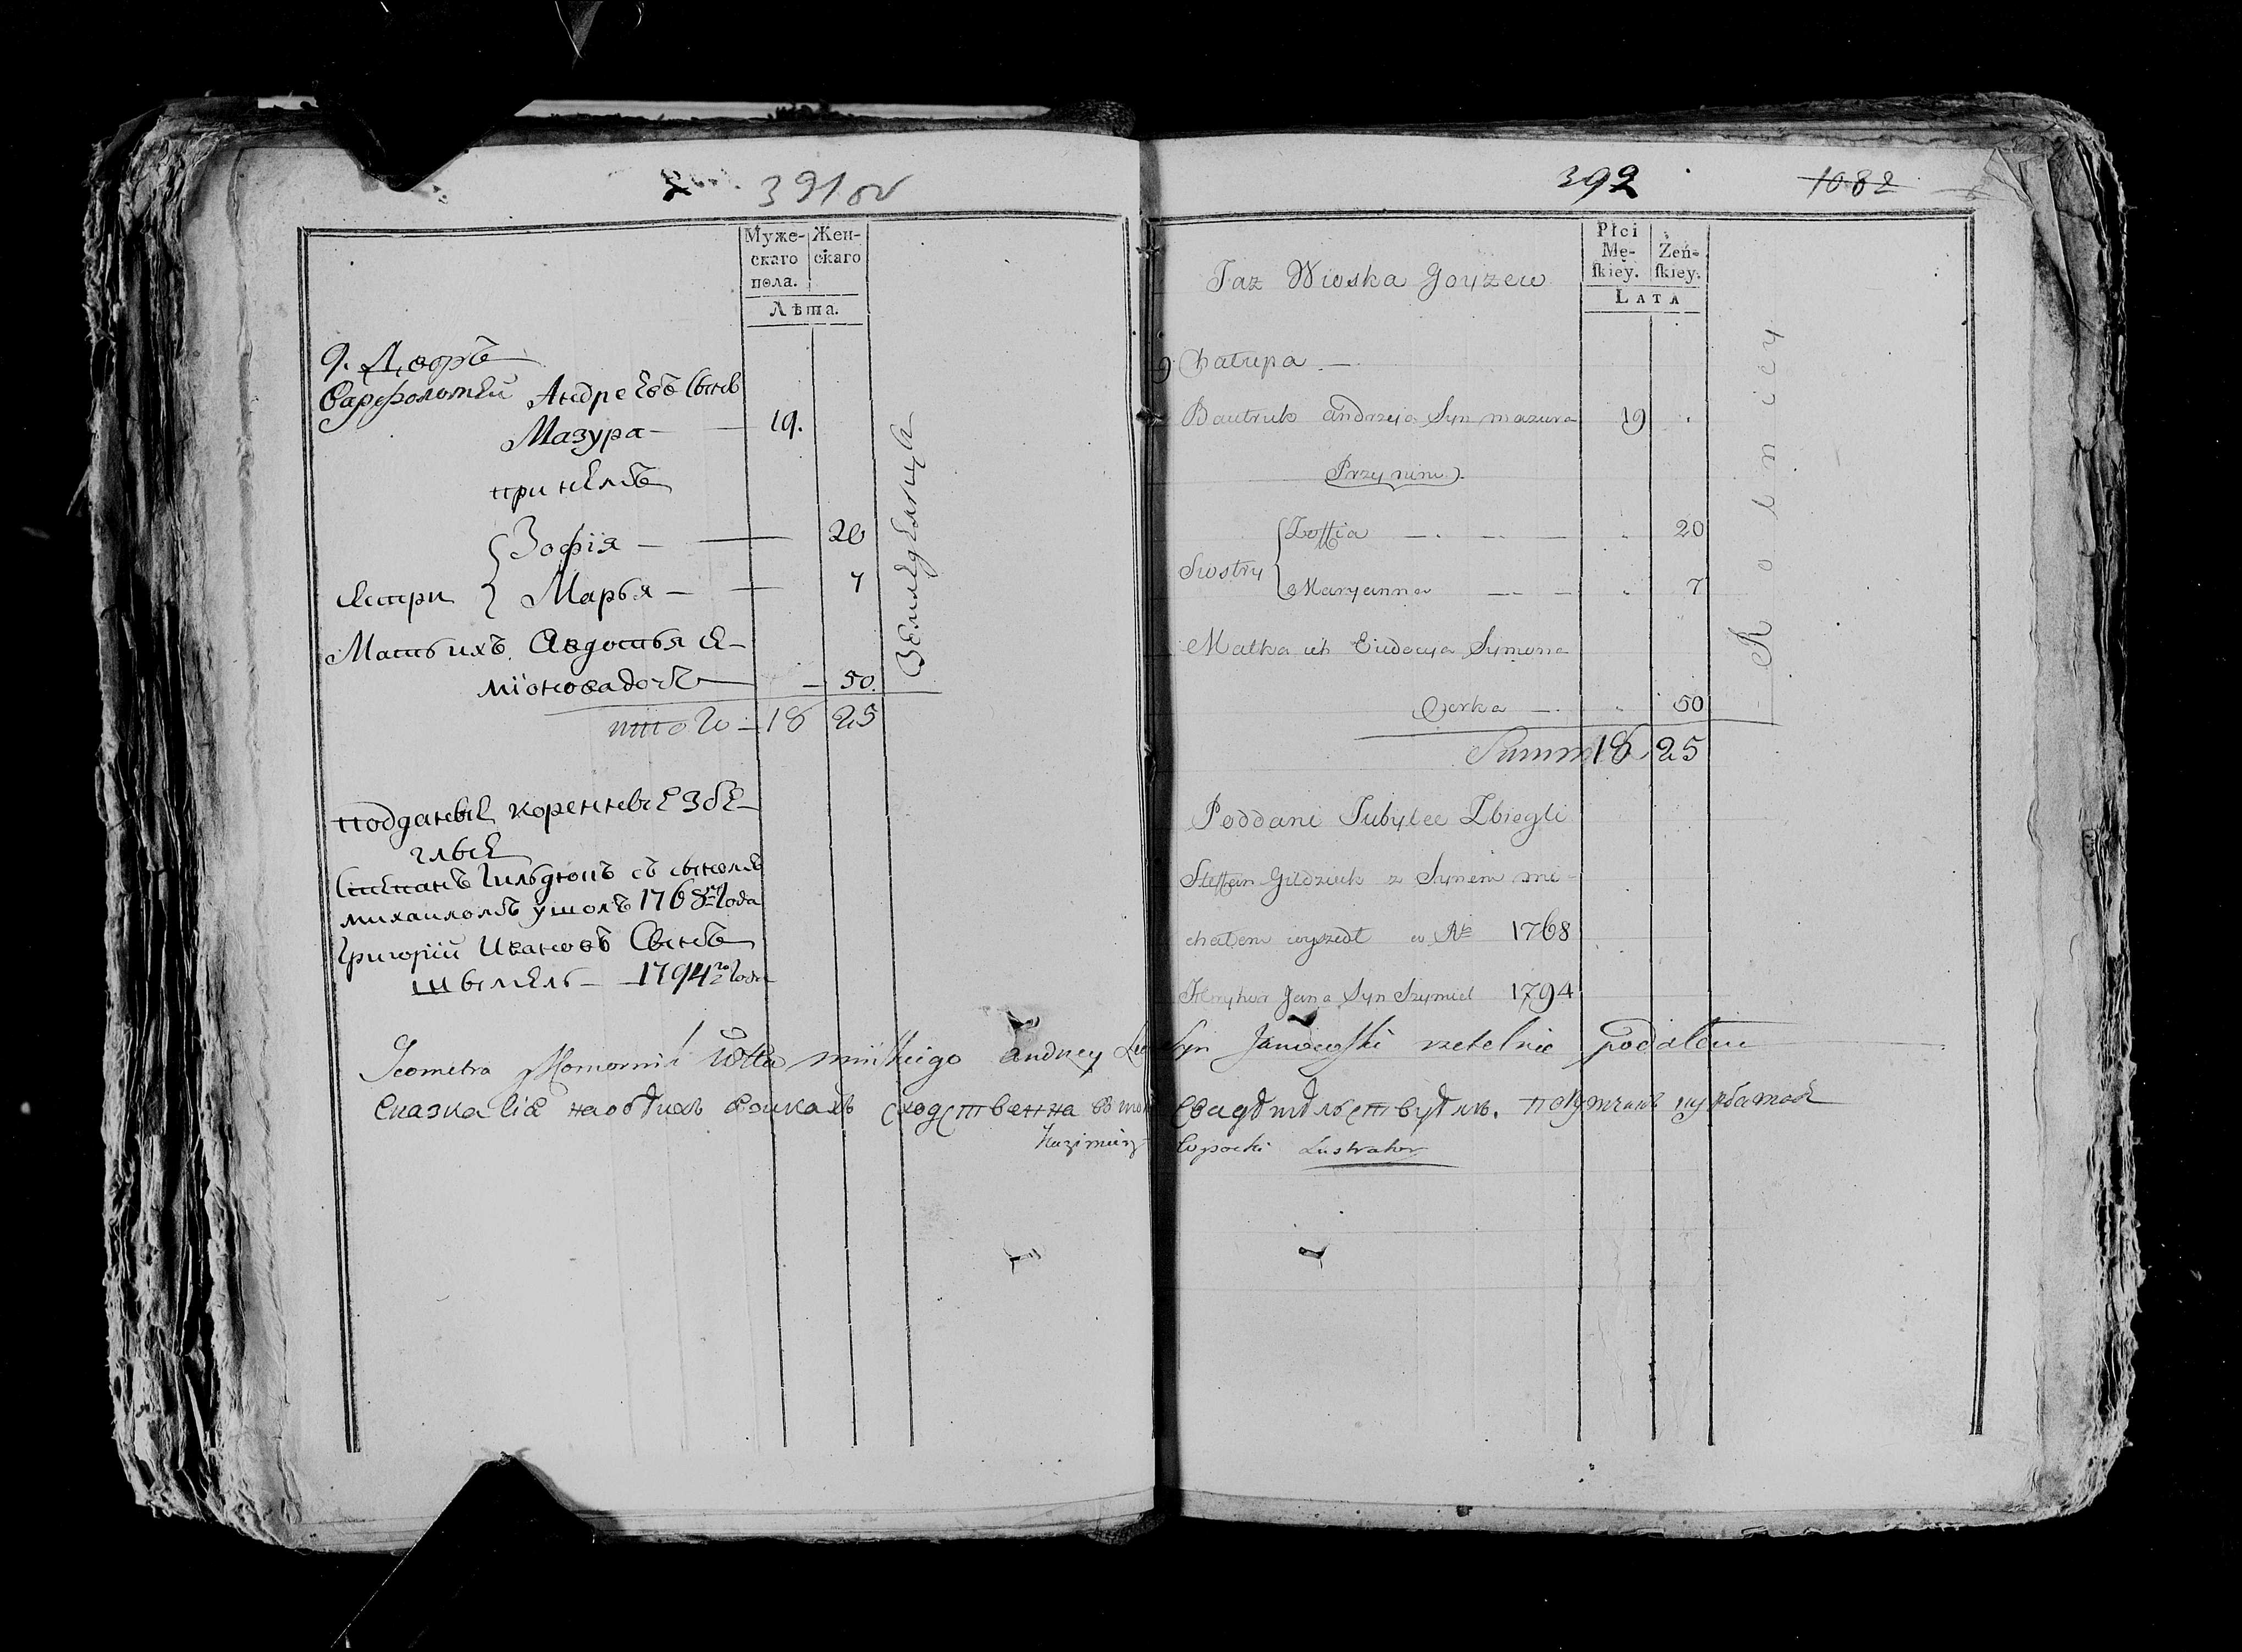 391 ov
Муже-
скаго
пола.
Жен-
скаго
Лѣта.
9. Дворъ
Варфоломей Андреевъ Сынъ
Мазура — 19.
при немъ
Зофія — 20
сестри Марья — 7
Мать ихъ Авдотья Се-
міоновадочь — 50.
итого — 18 25
Земледелицы
подданые коренные збе-
глые
Степанъ Гильдюкъ съ сыномъ
михаиломъ ушолъ 1768го Года
Григорій Ивановъ Сынъ
Шымель — 1794го Года
392
1082
Taż Wioska Goyzew
Płci
Mę-
ſkiey.
Żeń-
ſkiey.
LATA
9 Chałupa —
Bautruk Andrzeja Syn mazura 19
Przy nim
Zoffia — 20
Siostry Maryanna — 7
Matka ich Eudocya Symona
Corka — 50
Summa 18 25
Rolnicy
Poddani Tubylce Zbiegli
Steffan Gildziuk z Synem mi-
chałem wyszedł w Rk 1768
Hryhor Jana Syn Szymel 1794
Jeometra Komornik Wttwa mińskiego Andrzey Syn Janowski rzetelnie podałem
Сказка сія на обѣихъ языкахъ сходственна въ томъ свидѣтельствуемъ.
Kazimierz Lopocki Lustrator